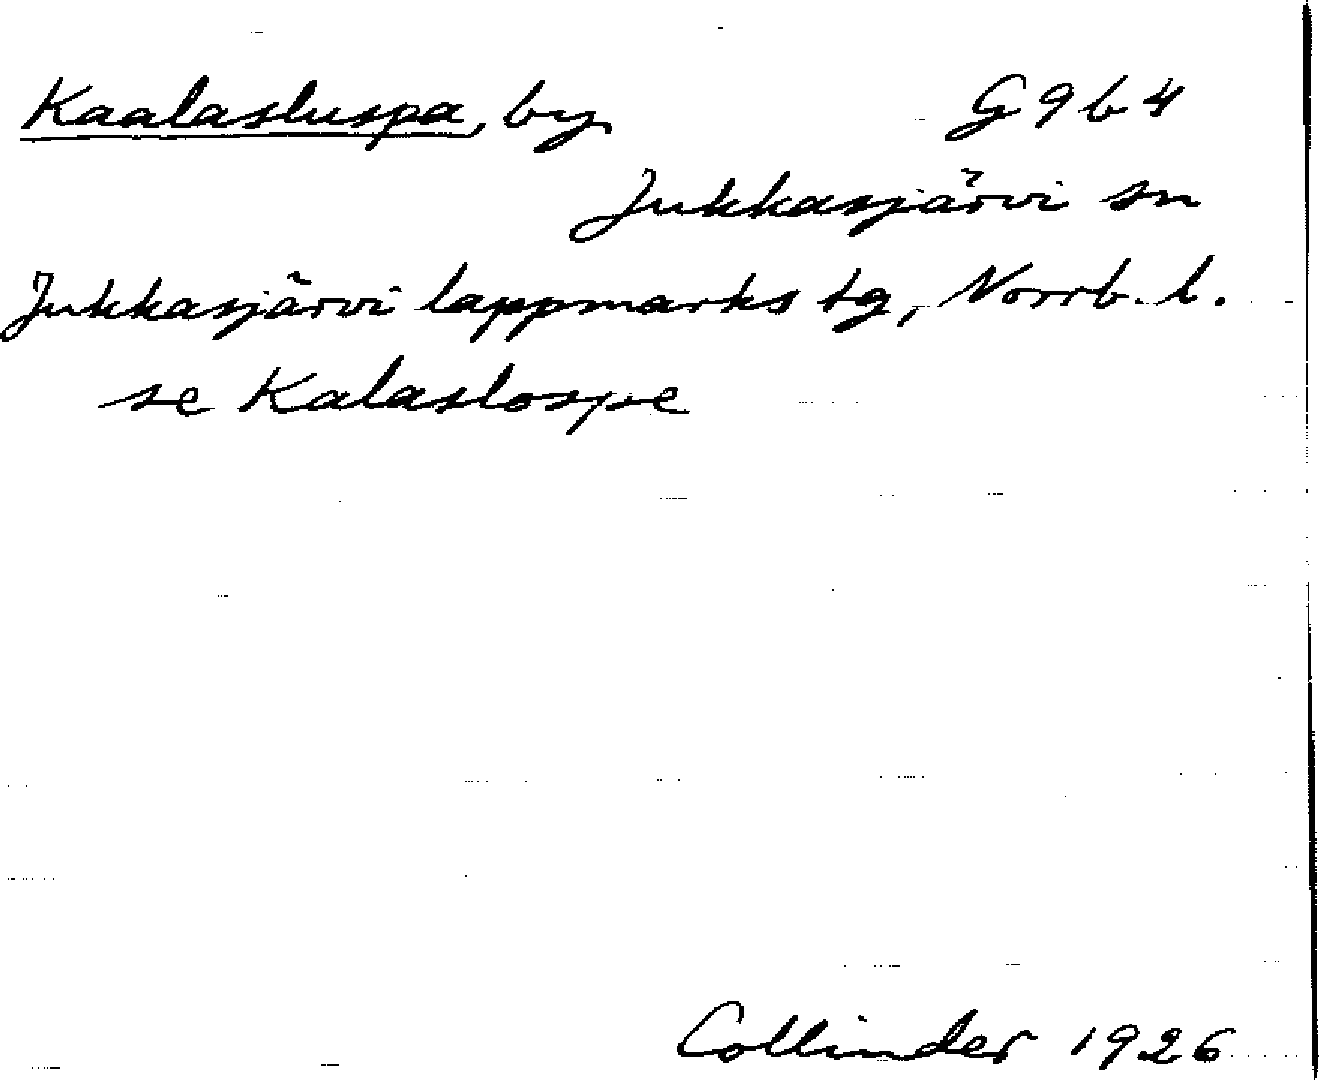 Kaalasluspa, by G 9 b 4
Jukkasjärvi sn
Jukkasjärvi lappmarks tg, Norrb. l.
se Kalaslospe
Collinder 1926